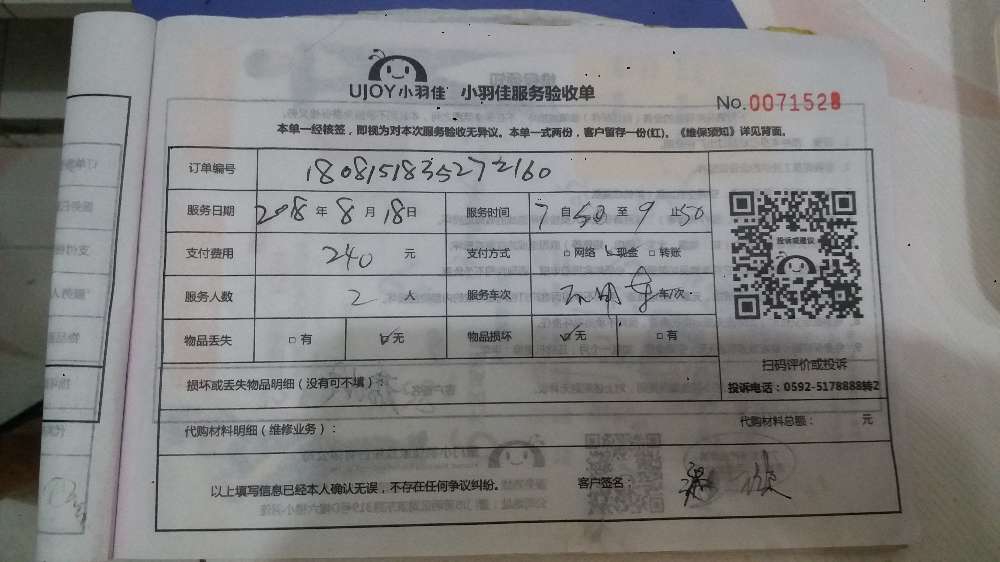 UJOY小羽佳 小羽佳服务验收单
No.0071528
本单一经核签，即视为对本次服务验收无异议。本单一式两份，客户留存一份(红)。《维保须知》详见背面。
订单编号 1808151835272160
服务日期 2018年8月18日 服务时间 7自50至9止50
支付费用 240元 支付方式 □网络 ☑现金 □转账
投诉或建议
服务人数 2人 服务车次 不用车 车/次
物品丢失 □有 ☑无 物品损坏 ☑无 □有
扫码评价或投诉
损坏或丢失物品明细（没有可不填） 投诉电话：0592-5178888转2
代购材料明细（维修业务）： 代购材料总额： 元
以上填写信息已经本人确认无误，不存在任何争议纠纷。 客户签名：